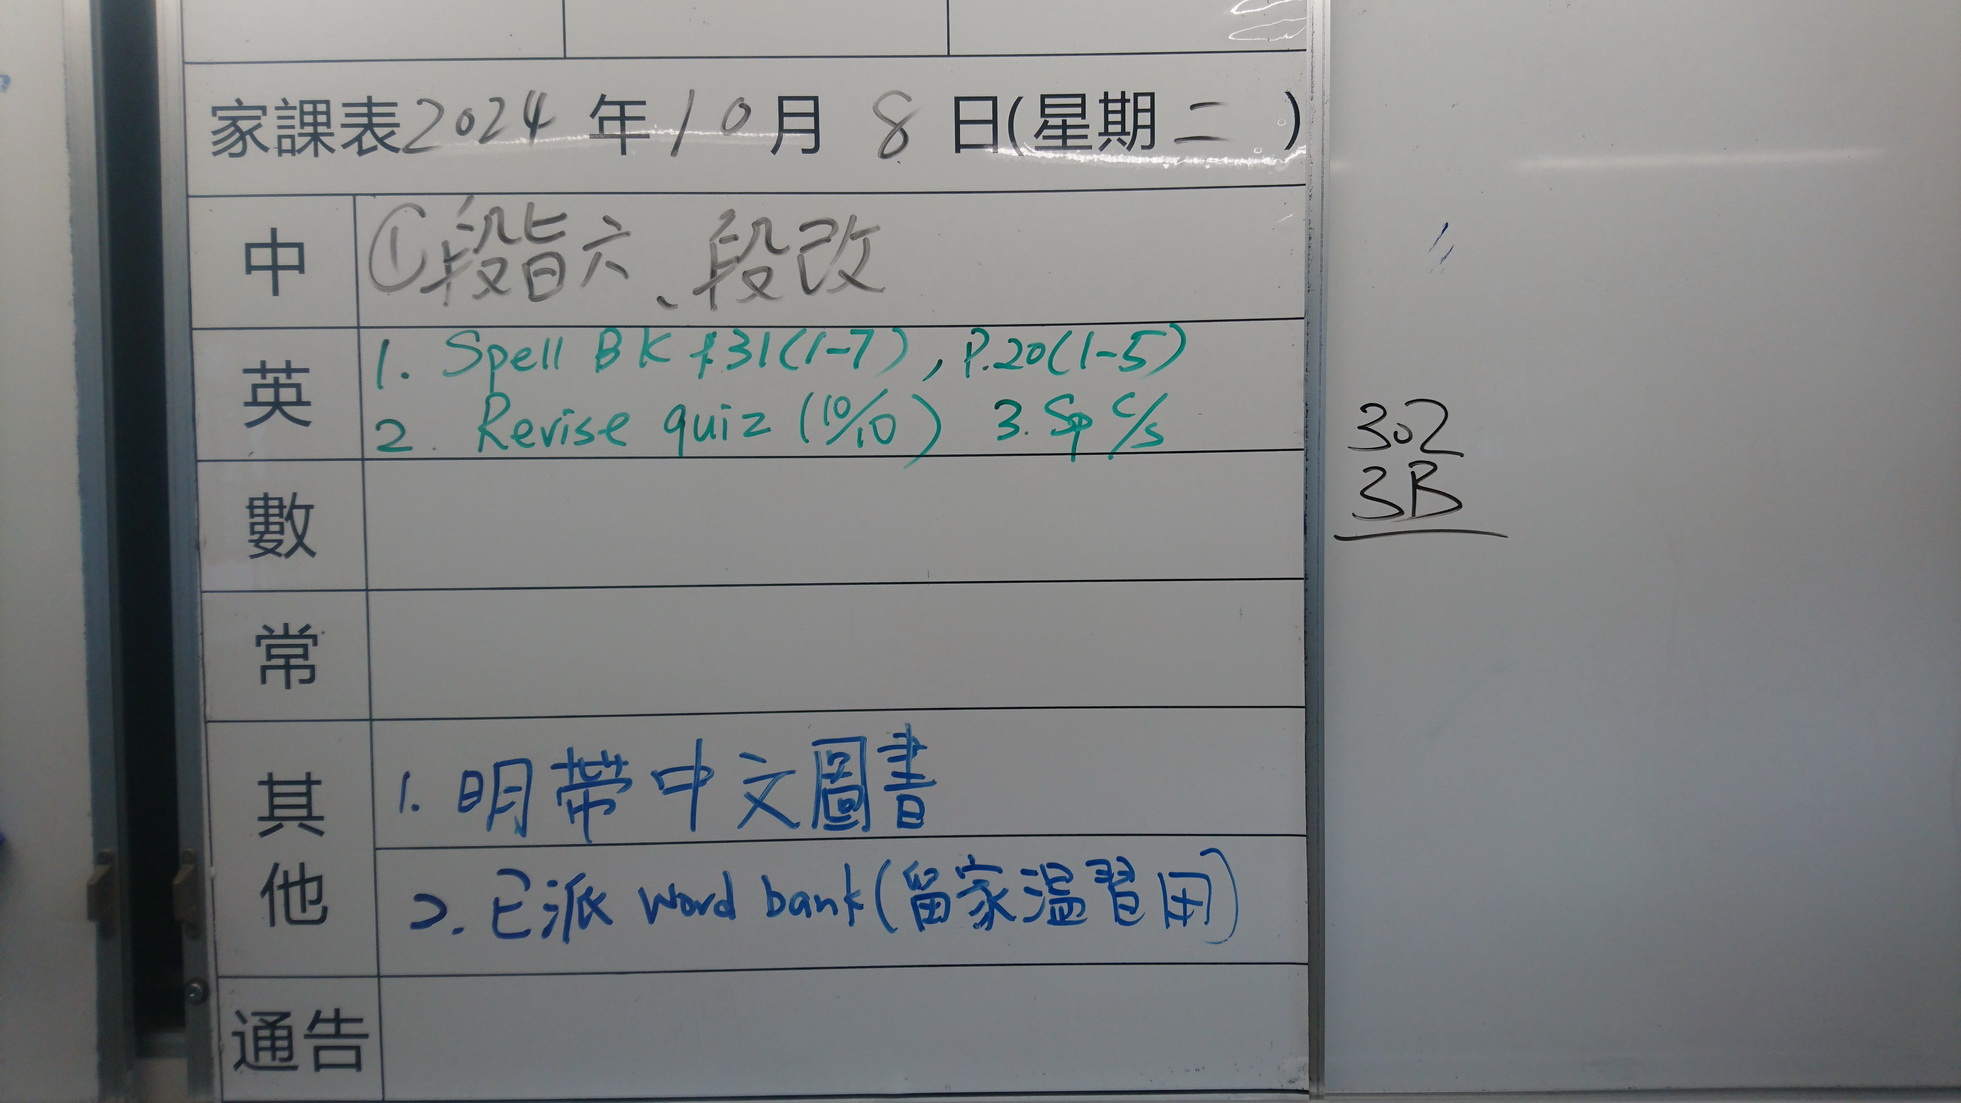 家課表2024年10月8日(星期二)
中
①段旨六、段改
英
1. Spell BK p.31(1-7), P.20(1-5)
2. Revise quiz (10/10) 3. Sp c/s
數
常
其他
1. 明帶中文圖書
2. 已派 word bank(留家温習用)
通告
302
3B